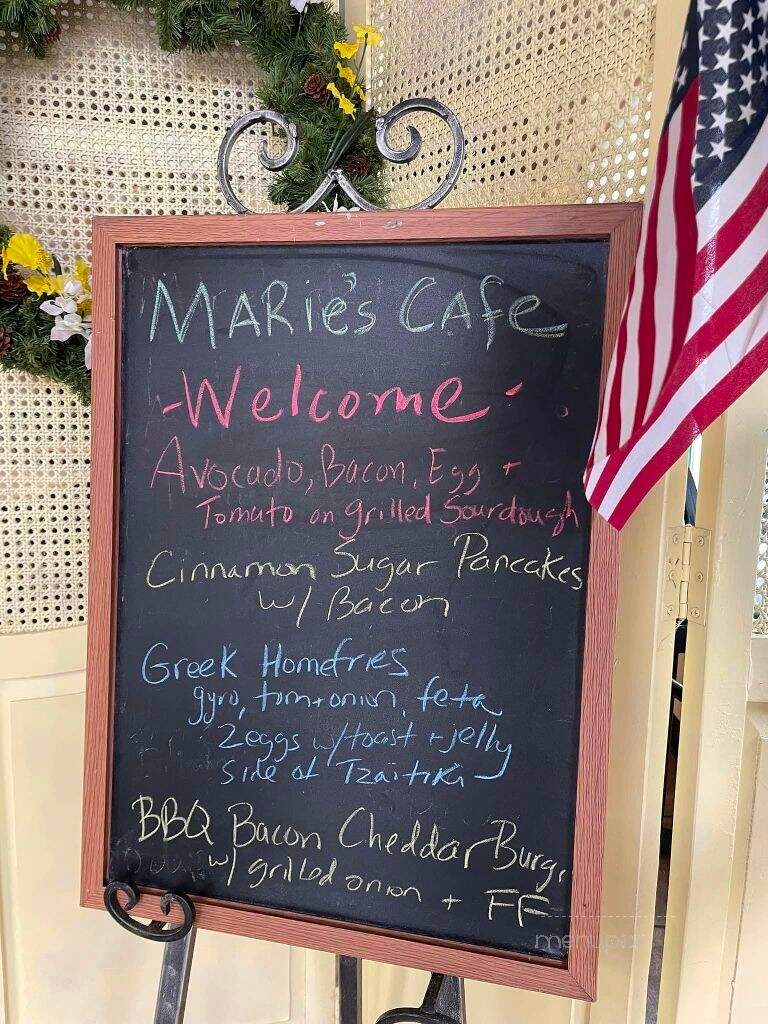 MARie's CAfe
-Welcome-
Avocado, Bacon, Egg +
Tomato on grilled Sourdough
Cinnamon Sugar Pancakes
w/ Bacon
Greek Homefries
gyro, tom+onion, feta
2eggs w/toast + jelly
Side of Tzaitiki
BBQ Bacon Cheddar Burg
w/ grilled onion + FF
menupix